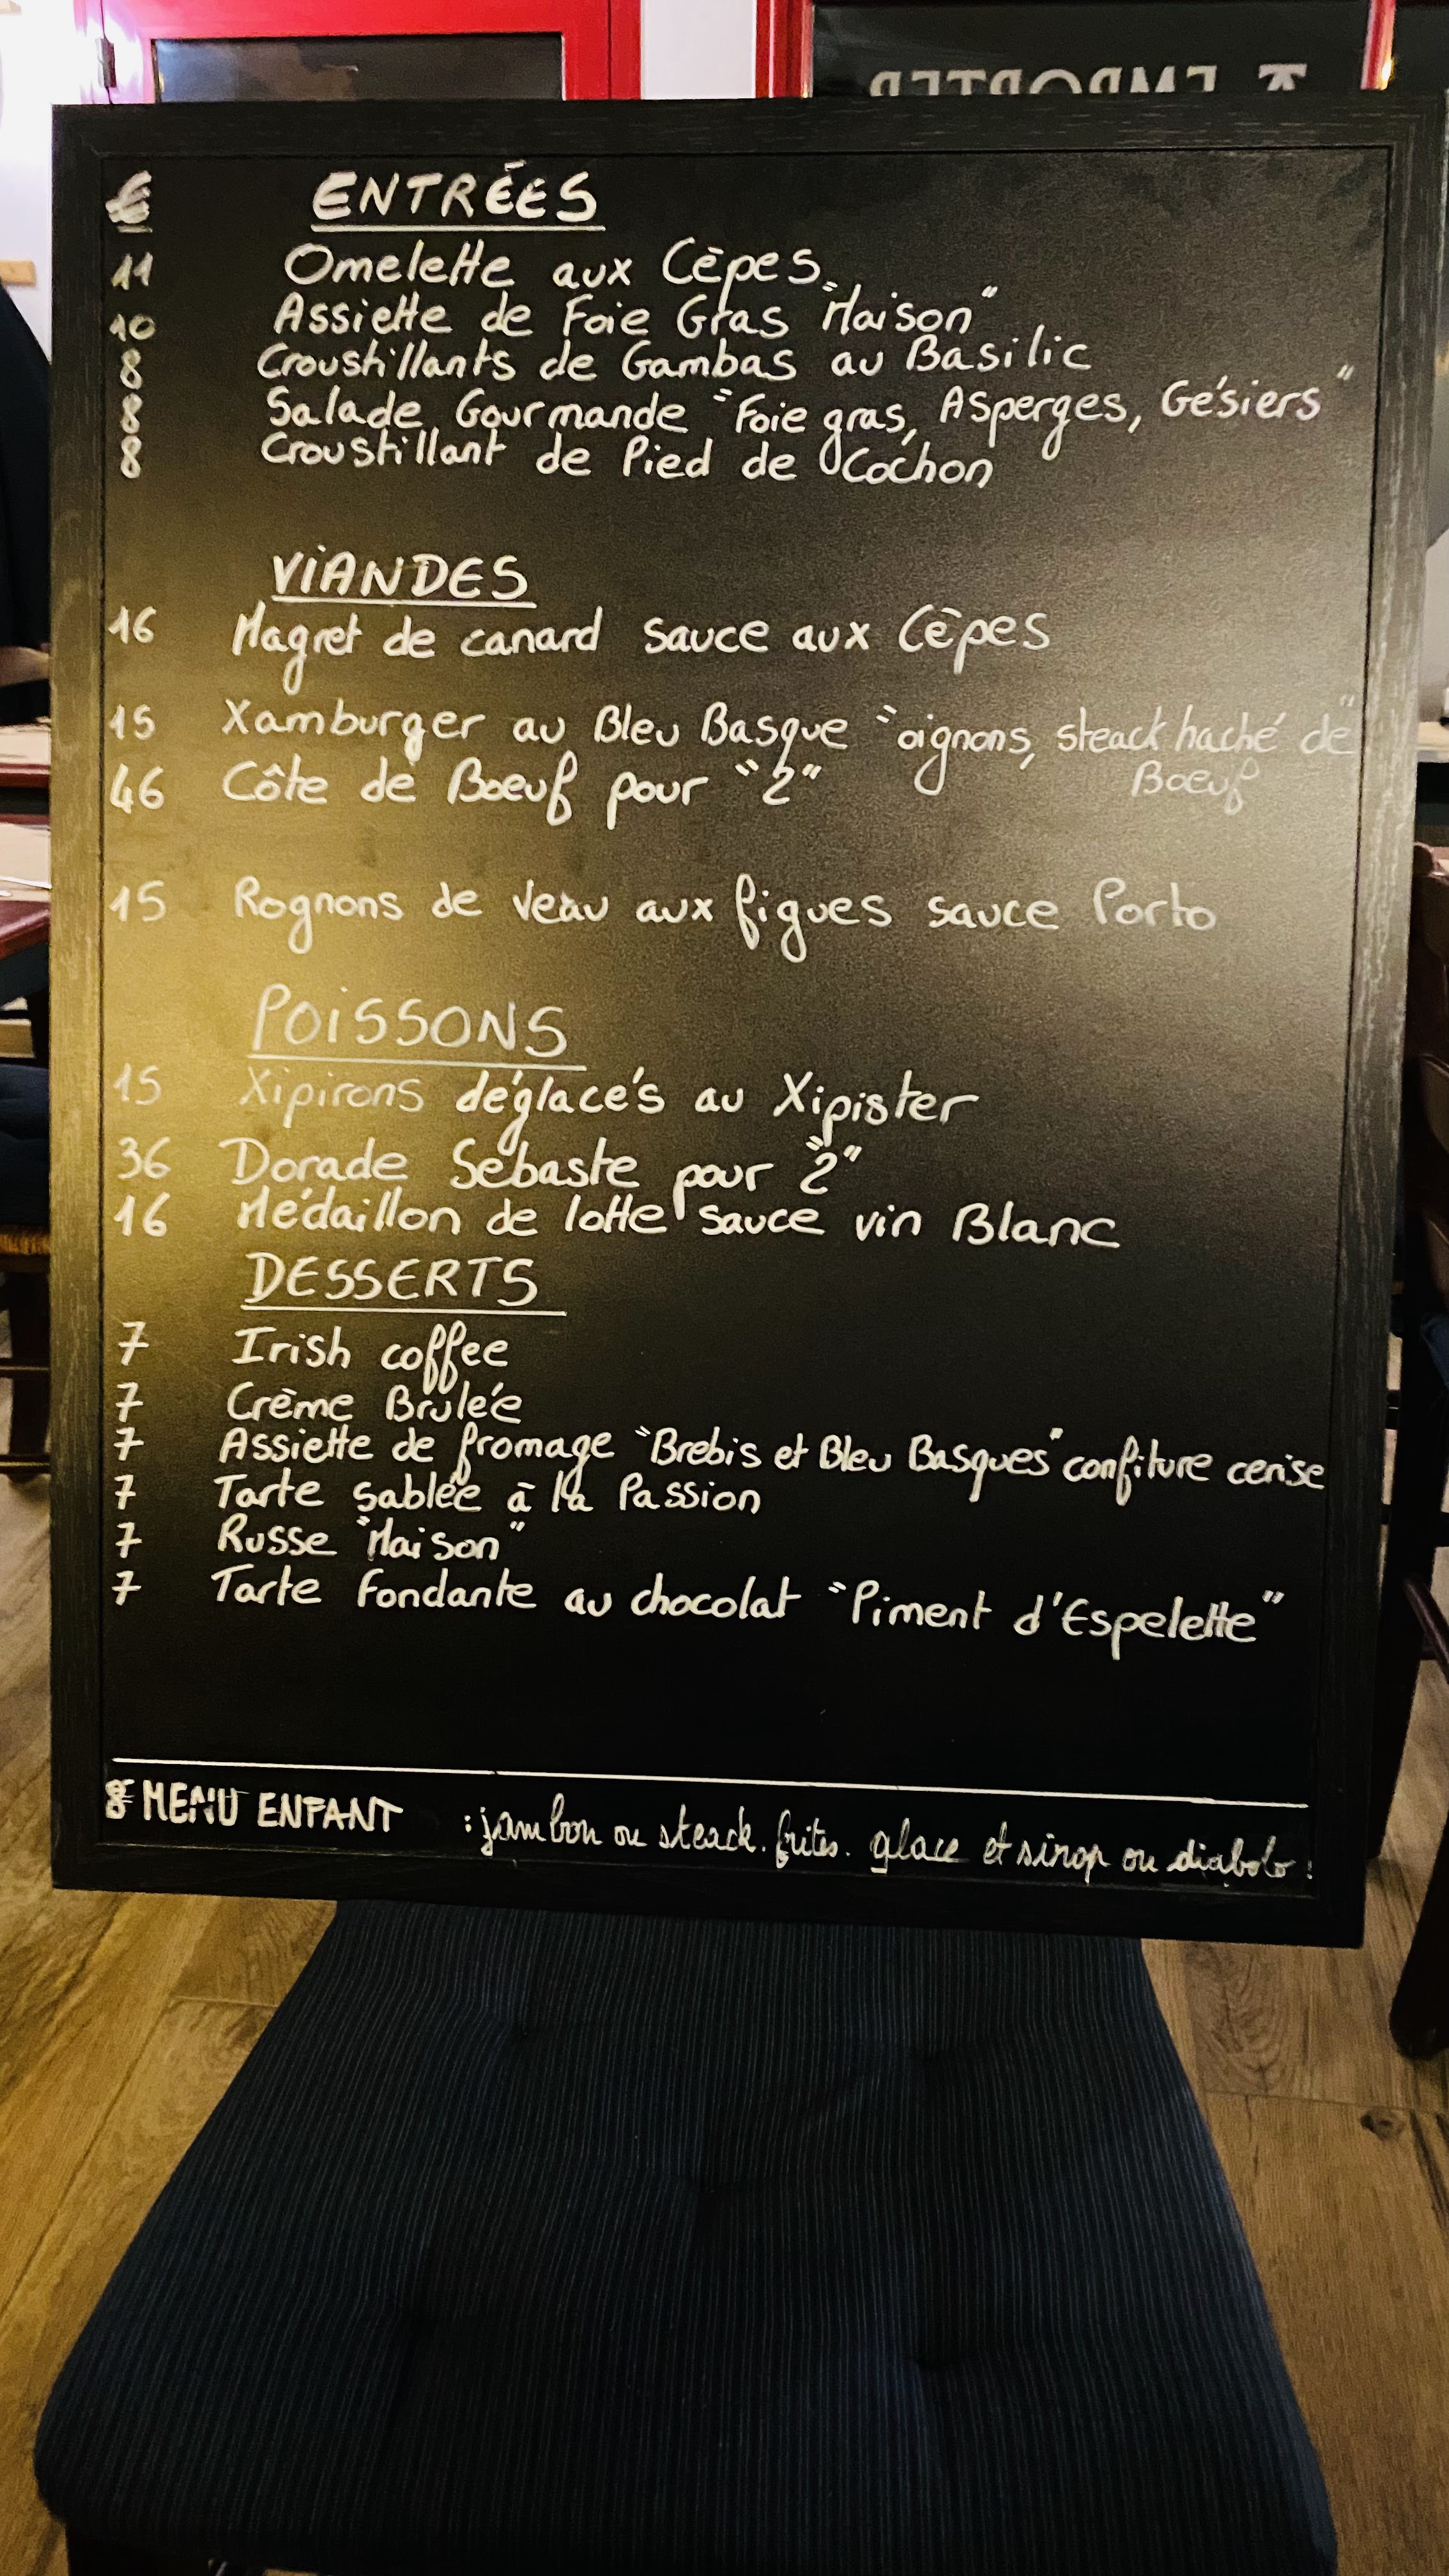 A EMPORTER
€ ENTRÉES
11 Omelette aux Cèpes.
10 Assiette de Foie Gras "Maison"
8 Croustillants de Gambas au Basilic
8 Salade Gourmande "Foie gras, Asperges, Gésiers"
8 Croustillant de Pied de Cochon
VIANDES
16 Magret de canard sauce aux Cèpes
15 Xamburger au Bleu Basque "oignons, steack haché de
Boeuf"
46 Côte de Boeuf pour "2"
15 Rognons de Veau aux figues sauce Porto
POISSONS
15 Xipirons déglacés au Xipister
36 Dorade Sébaste pour "2"
16 Médaillon de lotte sauce vin Blanc
DESSERTS
7 Irish coffee
7 Crème Brûlée
7 Assiette de fromage "Brebis et Bleu Basques" confiture cerise
7 Tarte sablée à la Passion
7 Russe "Maison"
7 Tarte Fondante au chocolat "Piment d'Espelette"
8€ MENU ENFANT : jambon ou steack. frites. glace et sirop ou diabolo.